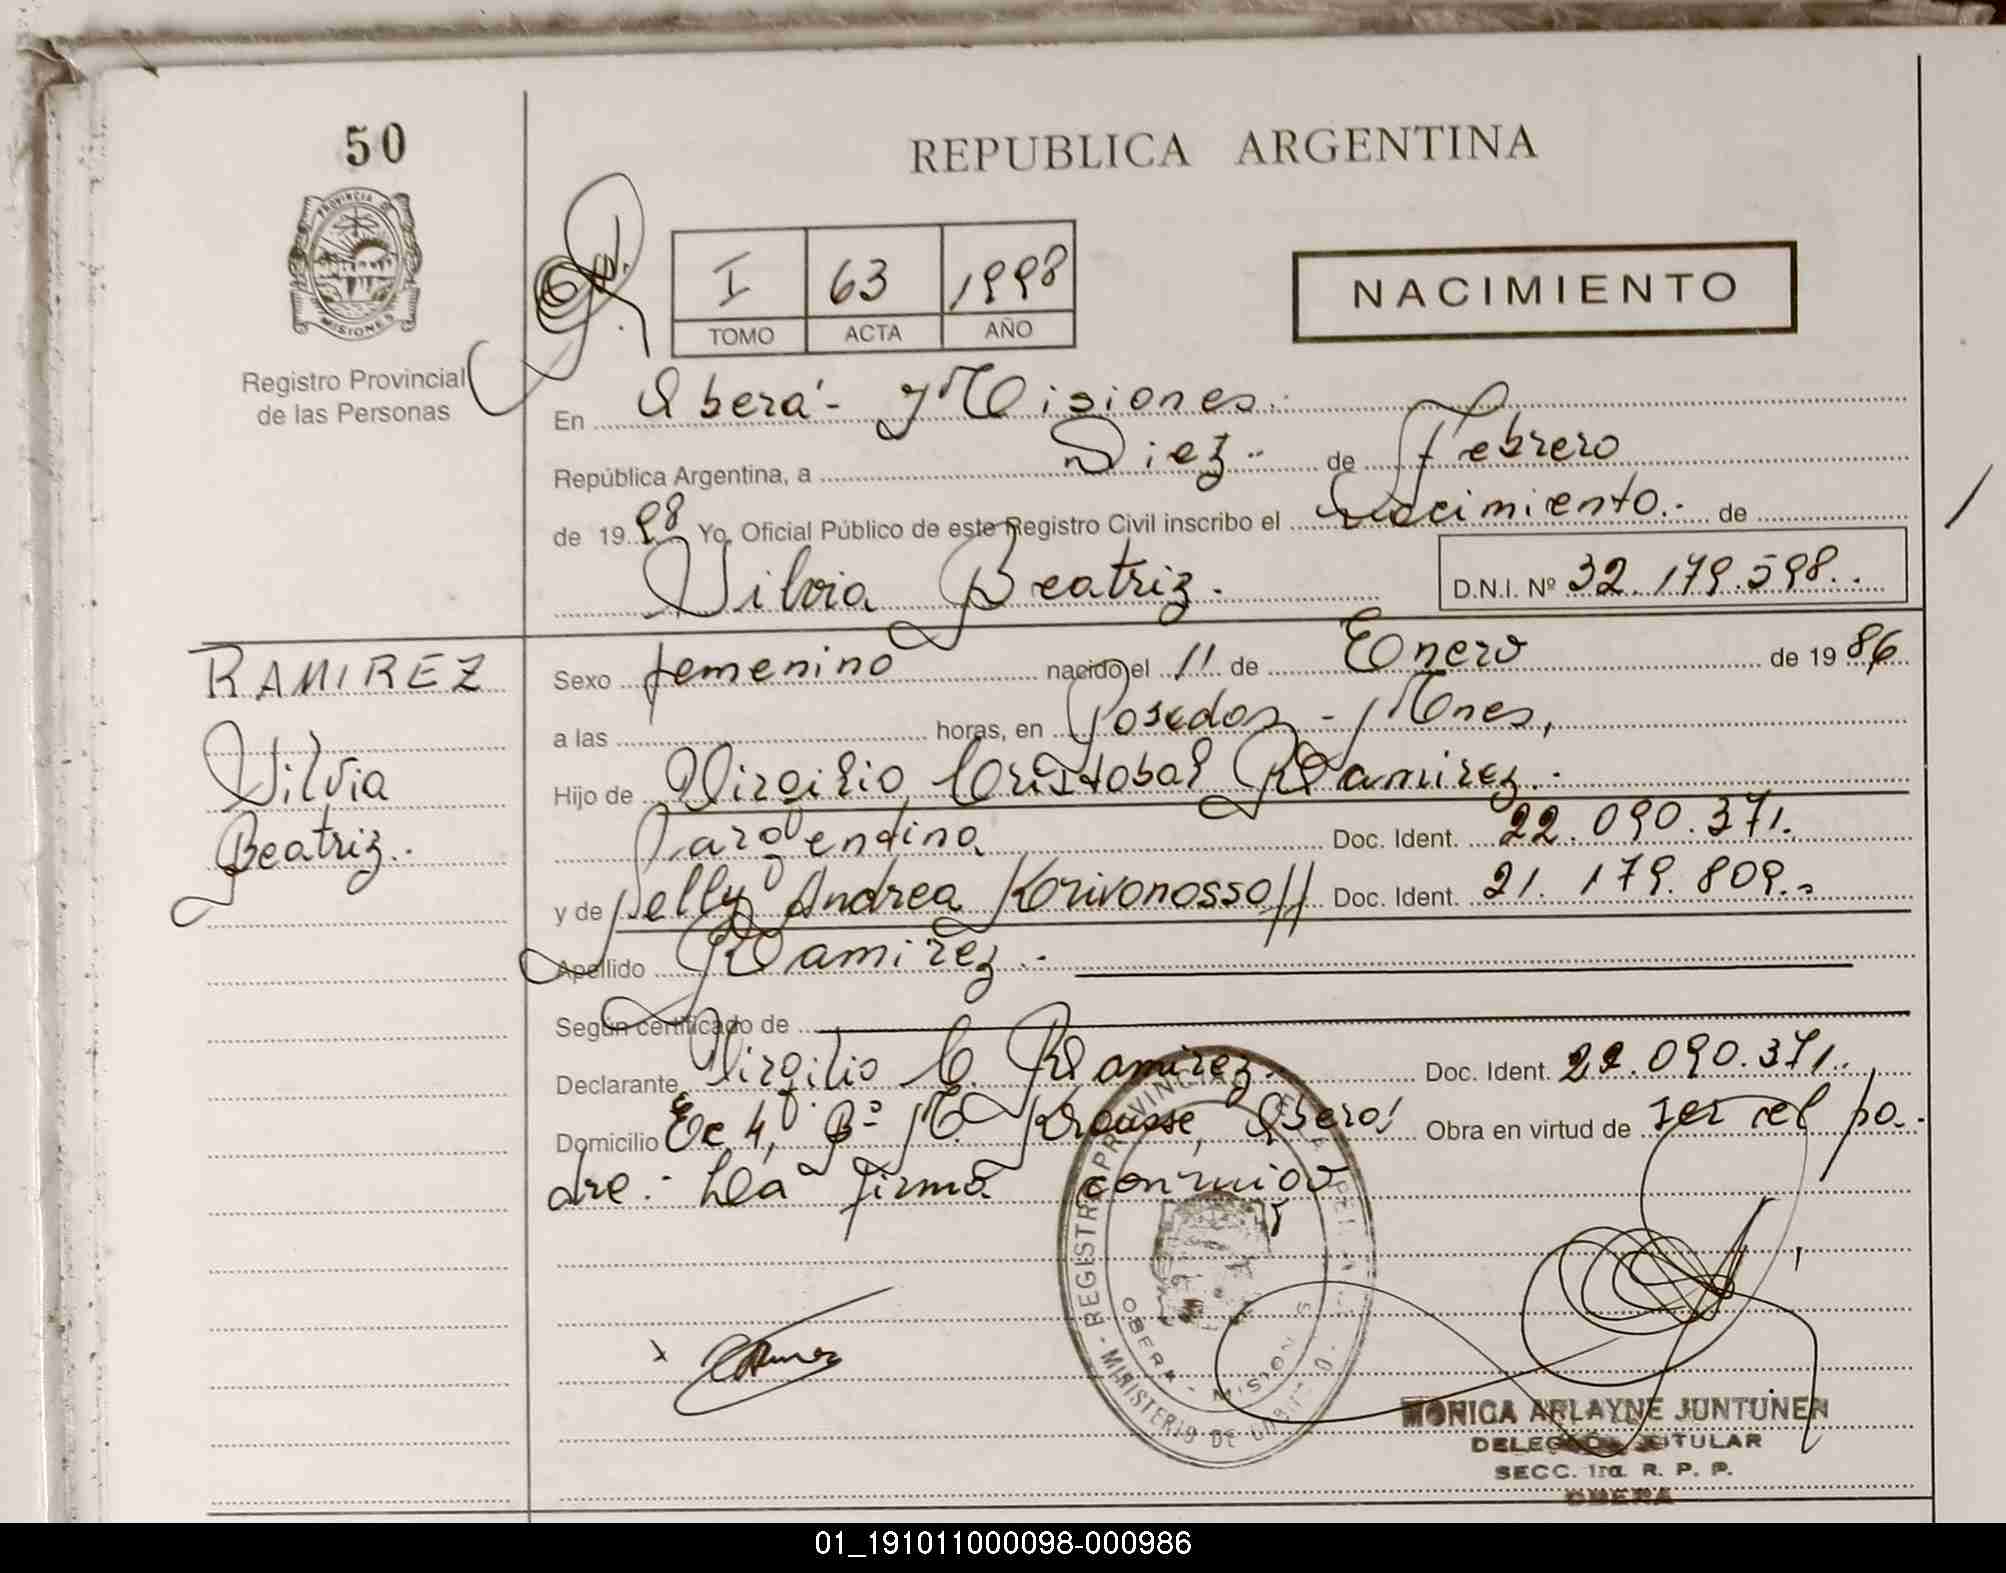 50
REPUBLICA ARGENTINA
PROVINCIA DE
MISIONES
I 63 1998
TOMO ACTA AÑO
NACIMIENTO
Registro Provincial
de las Personas
En Oberá - Misiones.
República Argentina, a Diez.. de Febrero
de 1998 Yo, Oficial Público de este Registro Civil inscribo el Nacimiento.- de
Silvia Beatriz.
D.N.I. Nº 32.179.598..
RAMIREZ
Silvia
Beatriz..
Sexo femenino nacido el 11 de Enero de 1986
a las horas, en Posadas - Mnes,
Hijo de Virgilio Cristobal Ramirez.
argentina Doc. Ident. 22.090.371.
y de Nelly Andrea Korivonossoff Doc. Ident. 21.179.809..
Apellido Ramirez..
Según certificado de
Declarante Virgilio C. Ramirez. Doc. Ident. 22.090.371..
Domicilio 4, Bº Oberá Obra en virtud de ser el pa-
dre.- firma conmigo
REGISTRO PROVINCIAL DE LAS
MINISTERIO DE
OBERA - MISIONES
MONICA ARLAYNE JUNTUNEN
TITULAR
SECC. 1ra. R. P. P.
OBERA
01_191011000098-000986